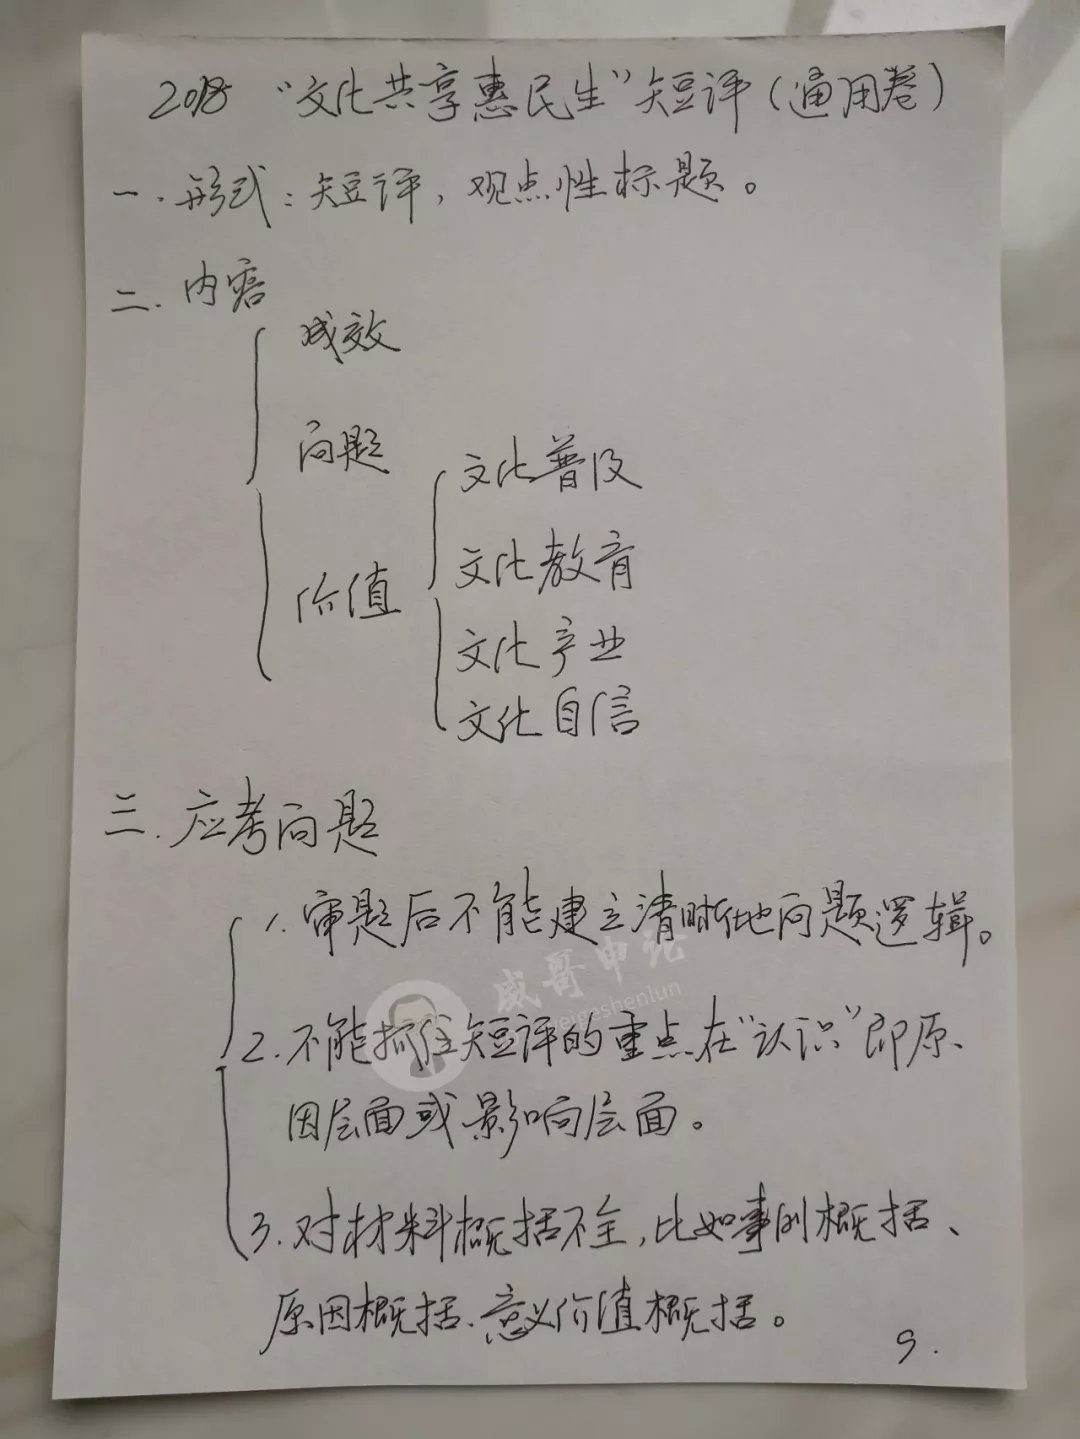 2018 “文化共享惠民生”短评（通用卷）
一．形式：短评，观点性标题。
二．内容
成效
问题
价值
文化普及
文化教育
文化产业
文化自信
三．应考问题
1. 审题后不能建立清晰地问题逻辑。
威哥申论
weigeshenlun
2. 不能抓住短评的重点在“认识”即原
因层面或影响层面。
3. 对材料概括不全，比如事例概括、
原因概括、意义价值概括。
9.